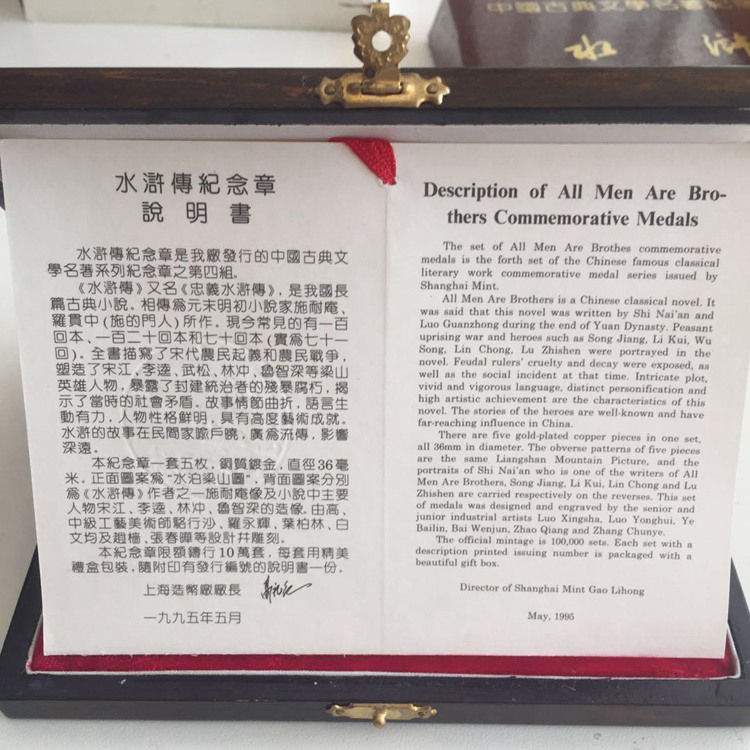 中國古典文學名著紀
水滸
水滸傳紀念章
說明書
水滸傳紀念章是我廠發行的中國古典文
學名著系列紀念章之第四組.
《水滸傳》又名《忠義水滸傳》,是我國長
篇古典小説。相傳爲元末明初小說家施耐庵、
羅貫中(施的門人)所作。現今常見的有一百
回本、一百二十回本和七十回本(實爲七十一
回)。全書描寫了宋代農民起義和農民戰爭,
塑造了宋江、李逵、武松、林冲、魯智深等梁山
英雄人物,暴露了封建統治者的殘暴腐朽,揭
示了當時的社會矛盾。故事情節曲折,語言生
動有力,人物性格鮮明,具有高度藝術成就。
水滸的故事在民間家喻戶曉,廣爲流傳,影響
深遠。
本紀念章一套五枚,銅質鍍金,直徑36毫
米,正面圖案爲“水泊梁山圖”,背面圖案分別
爲《水滸傳》作者之一施耐庵像及小說中主要
人物宋江、李逵、林冲、魯智深的造像。由高、
中級工藝美術師駱行沙、羅永輝、葉柏林、白
文均及趙樯、張春曄等設計幷雕刻。
本紀念章限額鑄行10萬套,每套用精美
禮盒包裝,隨附印有發行編號的說明書一份。
上海造幣廠廠長
一九九五年五月
Description of All Men Are Bro-
thers Commemorative Medals
The set of All Men Are Brothes commemorative
medals is the forth set of the Chinese famous classical
literary work commemorative medal series issued by
Shanghai Mint.
All Men Are Brothers is a Chinese classical novel. It
was said that this novel was written by Shi Nai'an and
Luo Guanzhong during the end of Yuan Dynasty. Peasant
uprising war and heroes such as Song Jiang, Li Kui, Wu
Song, Lin Chong, Lu Zhishen were portrayed in the
novel. Feudal rulers' cruelty and decay were exposed, as
well as the social incident at that time. Intricate plot,
vivid and vigorous language, distinct personification and
high artistic achievement are the characteristics of this
novel. The stories of the heroes are well-known and have
far-reaching influence in China.
There are five gold-plated copper pieces in one set,
all 36mm in diameter. The obverse patterns of five pieces
are the same Liangshan Mountain Picture, and the
portraits of Shi Nai'an who is one of the writers of All
Men Are Brothers, Song Jiang, Li Kui, Lin Chong and Lu
Zhishen are carried respectively on the reverses. This set
of medals was designed and engraved by the senior and
junior industrial artists Luo Xingsha, Luo Yonghui, Ye
Bailin, Bai Wenjun, Zhao Qiang and Zhang Chunye.
The official mintage is 100,000 sets. Each set with a
description printed issuing number is packaged with a
beautiful gift box.
Director of Shanghai Mint Gao Lihong
May, 1995